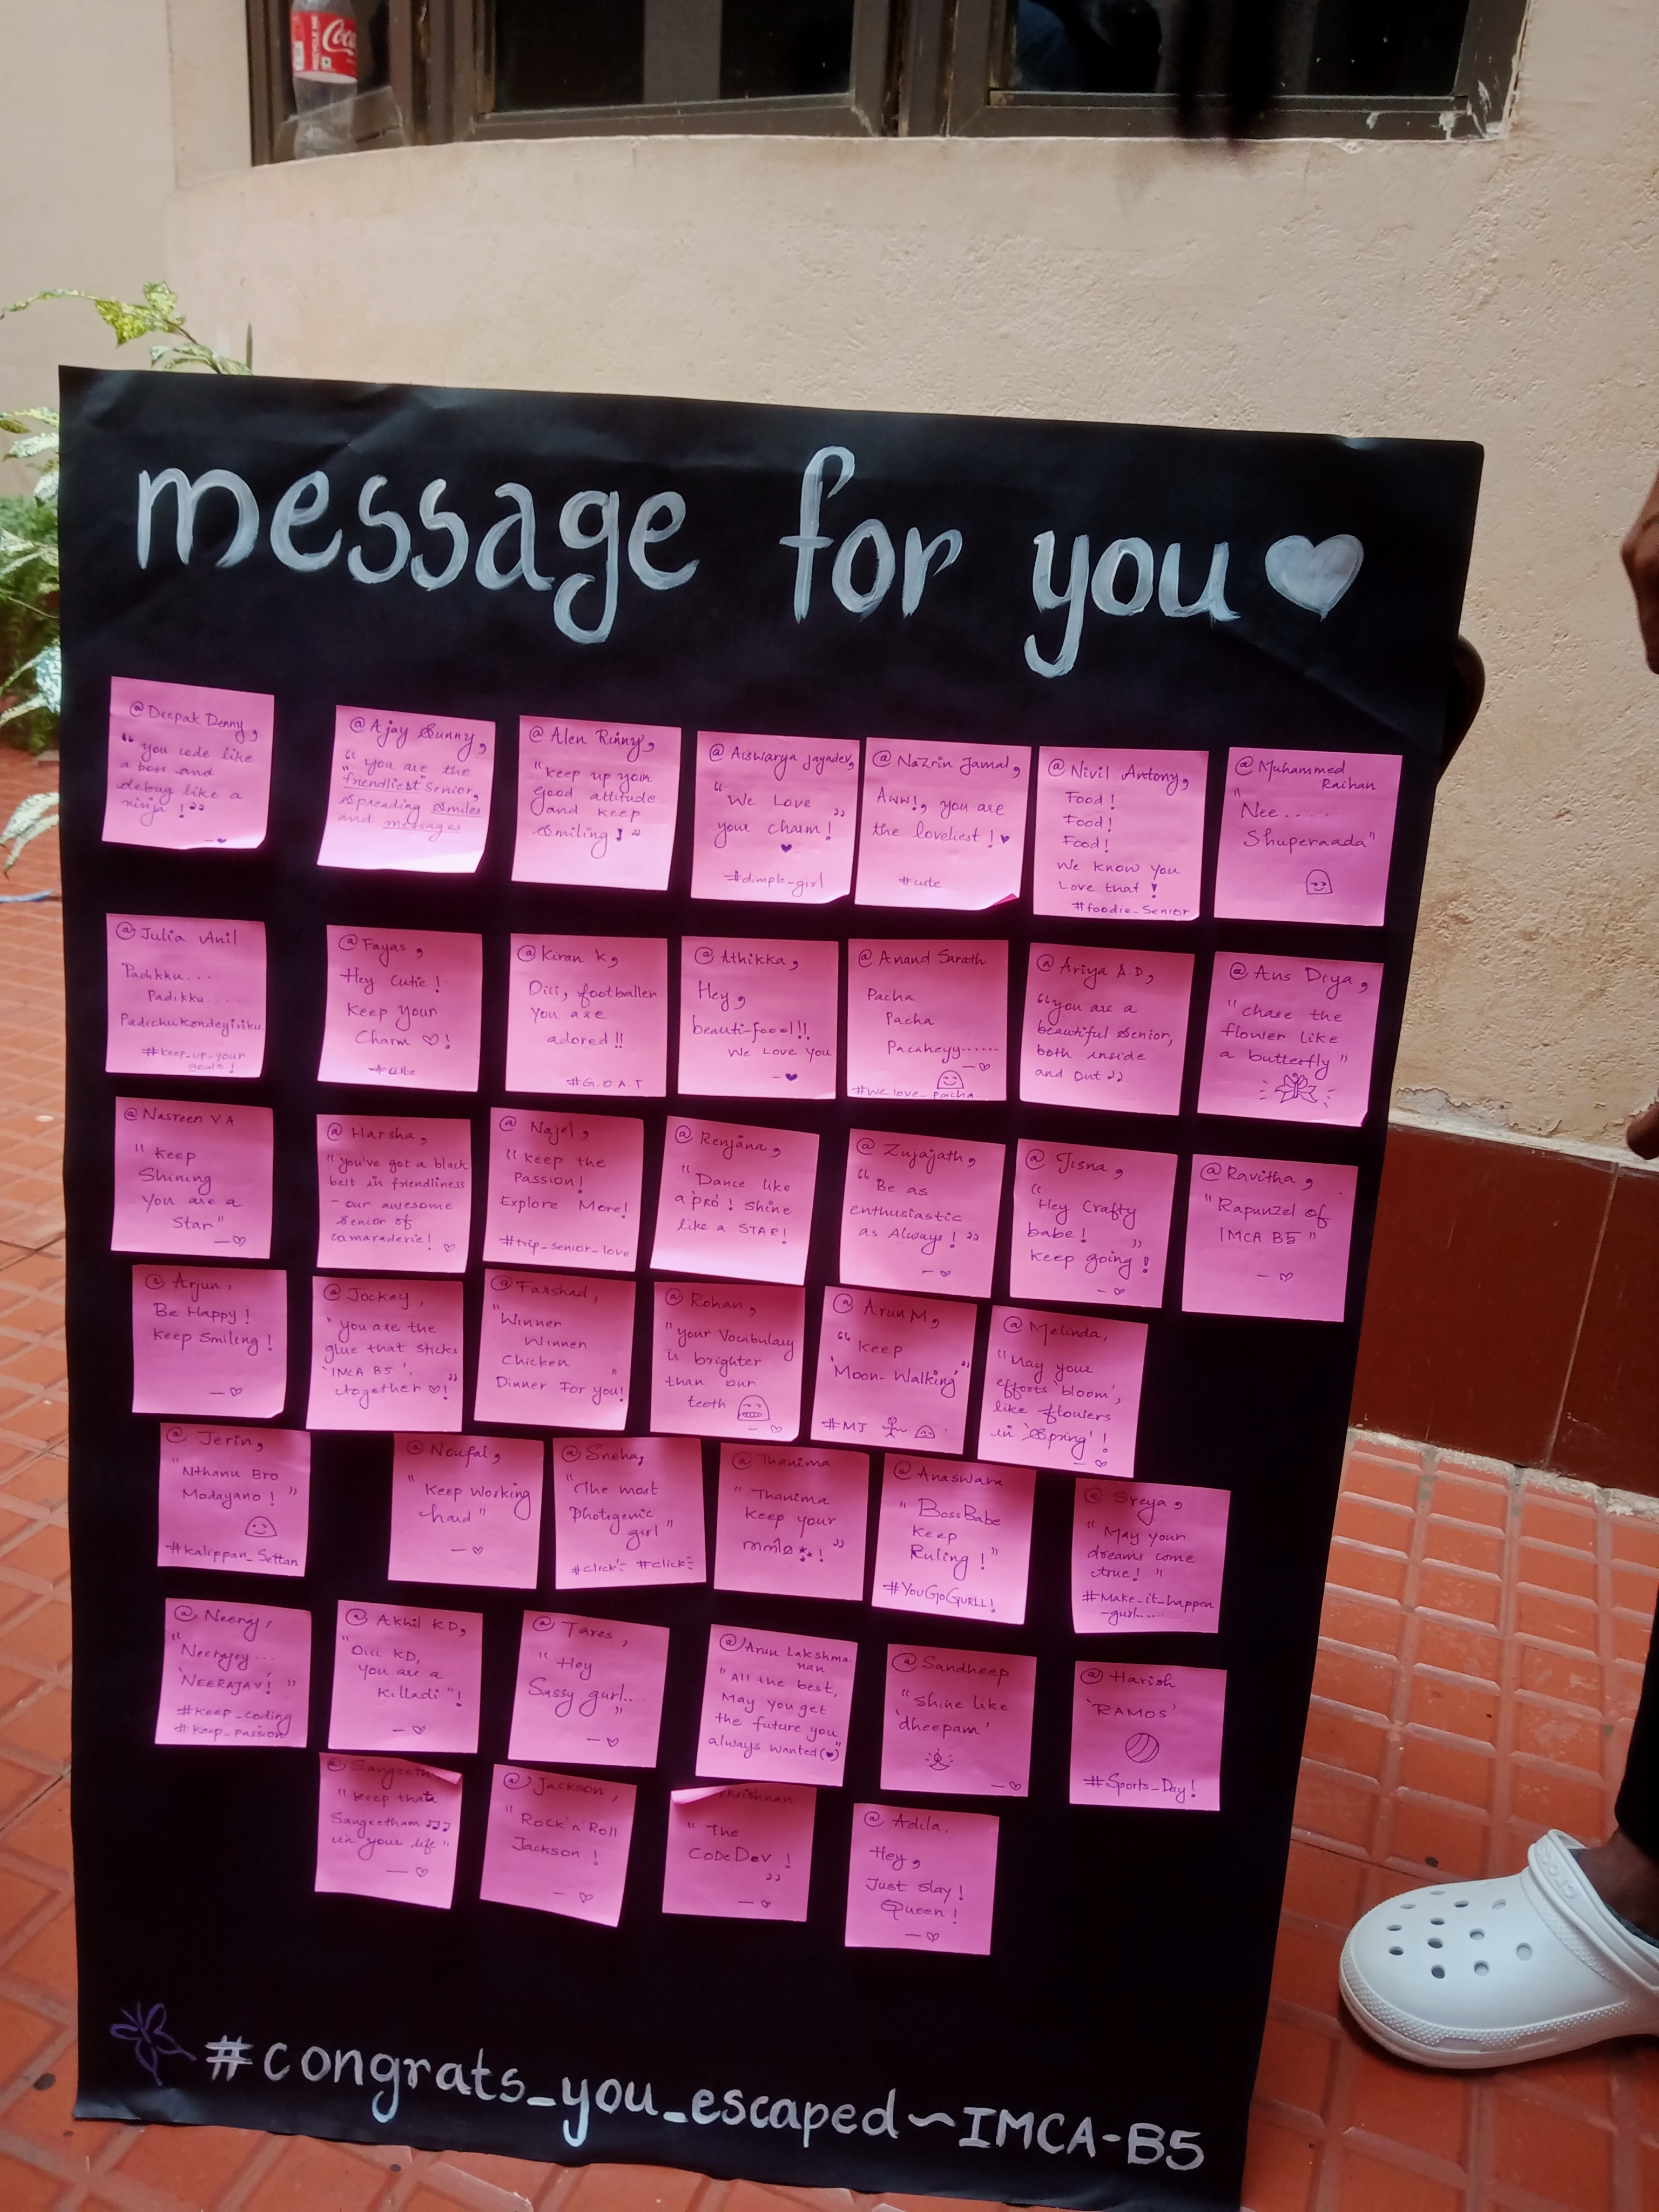 RECYCLE ME
Coca
message for you
@Deepak Denny,
"you code like
a boss and
debug like a
ninja!"
@Ajay Sunny,
"you are the
friendliest senior,
spreading smiles
and messages
@Alen Rinny,
"keep up your
good attitude
and keep
smiling!"
@Aiswarya Jayadev,
"We Love
your charm!"
#dimple_girl
@Nazrin Jamal,
Aww!, you are
the loveliest!
#cute
@Nivil Antony,
Food!
Food!
Food!
We know you
Love that!
#foodie_Senior
@Muhammed
Raihan
"Nee.....
Shuperaada"
@Julia Anil
Padikku...
Padikku.....
Padichukondeyiriku
#keep_up_your
goals!
@Fayas,
Hey Cutie!
Keep Your
Charm ♡!
#cute
@Kiran K,
Oiii, footballer
you are
adored!!
#G.O.A.T
@Athikka,
Hey,
beauti-fool!!!
We Love You
@Anand Sarath
Pacha
Pacha
Pacaheyy......
#We_love_pacha
@Ariya A.D,
"you are a
beautiful senior,
both inside
and out"
@Ans Diya,
"chase the
flower like
a butterfly"
@Nasreen V A
"keep
Shining
You are a
Star"
@Harsha,
"you've got a black
belt in friendliness
- our awesome
senior of
camaraderie!
@Najel,
"keep the
Passion!
Explore More!
#trip_senior_love
@Renjana,
"Dance like
a 'PRO'! Shine
like a STAR!
@Zujajath,
"Be as
enthusiastic
as Always!"
@Jisna,
"Hey Crafty
babe!
keep going!"
@Ravitha,
"Rapunzel of
IMCA B5"
@Arjun,
Be Happy!
Keep Smiling!
@Jockey,
"you are the
glue that sticks
'IMCA B5'
together ♡!"
@Farshad,
"Winner
Winner
Chicken
Dinner For you!"
@Rohan,
"your Vocabulary
is brighter
than our
teeth
@Arun M,
"keep
'Moon-Walking'"
#MJ
@Melinda,
"May your
efforts 'bloom',
like flowers
in 'Spring'!
@Jerin,
"Nthanu Bro
Modayano!"
#Kalippan_Settan
@Noufal,
"Keep Working
hard"
@Sneha,
"The most
Photogenic
girl"
#click #click
@Thanima
"Thanima
keep your
തനിമ!"
@Anaswara
"BossBabe
Keep
Ruling!"
#YouGoGURLL!
@Sreya,
"May your
dreams come
true!"
#Make_it_happen
_gurl.....
@Neeraj,
"Neerajey....
'NEERAJAV!'"
#keep_coding
#keep_passion
@Akhil KD,
"Oiii KD,
you are a
Killadi"!
@Tares,
"Hey
Sassy gurl...."
@Arun Lakshma
nan
"All the best,
May you get
the future you
always wanted(♥)"
@Sandheep
"shine like
'dheepam'
@Harish
'RAMOS'
#Sports_Day!
@Sangeeth
"keep that
Sangeetham ♫♪
in your life"
@Jackson,
"Rock'n'Roll
Jackson!
krishnan
"The
CODE Dev!"
@Adila,
Hey,
Just slay!
Queen!
#congrats_you_escaped~IMCA-B5
crocs